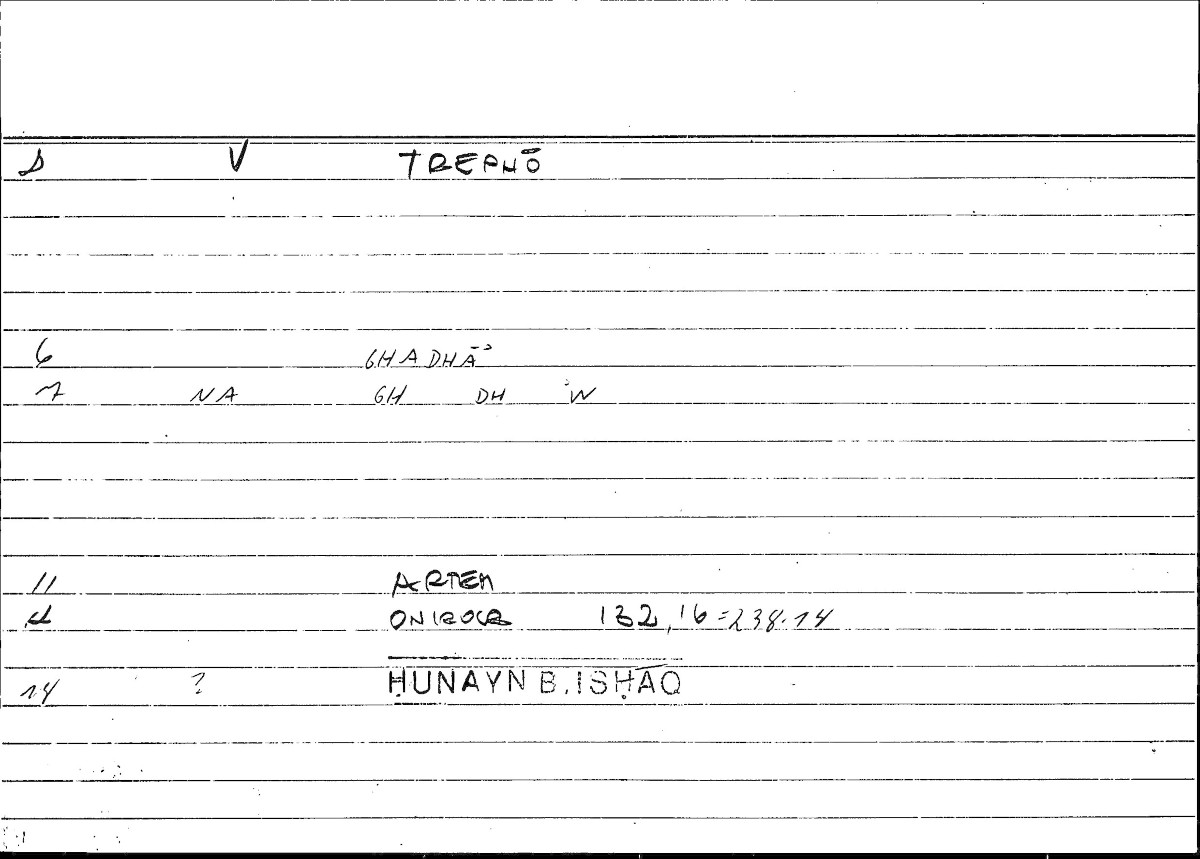 V TREPHŌ
6 GHADHĀʾ
7 NA GH DH W
11 ARTEM
ONIROCR 132,16=238.14
14 ? ḤUNAYN B. ISḤĀQ